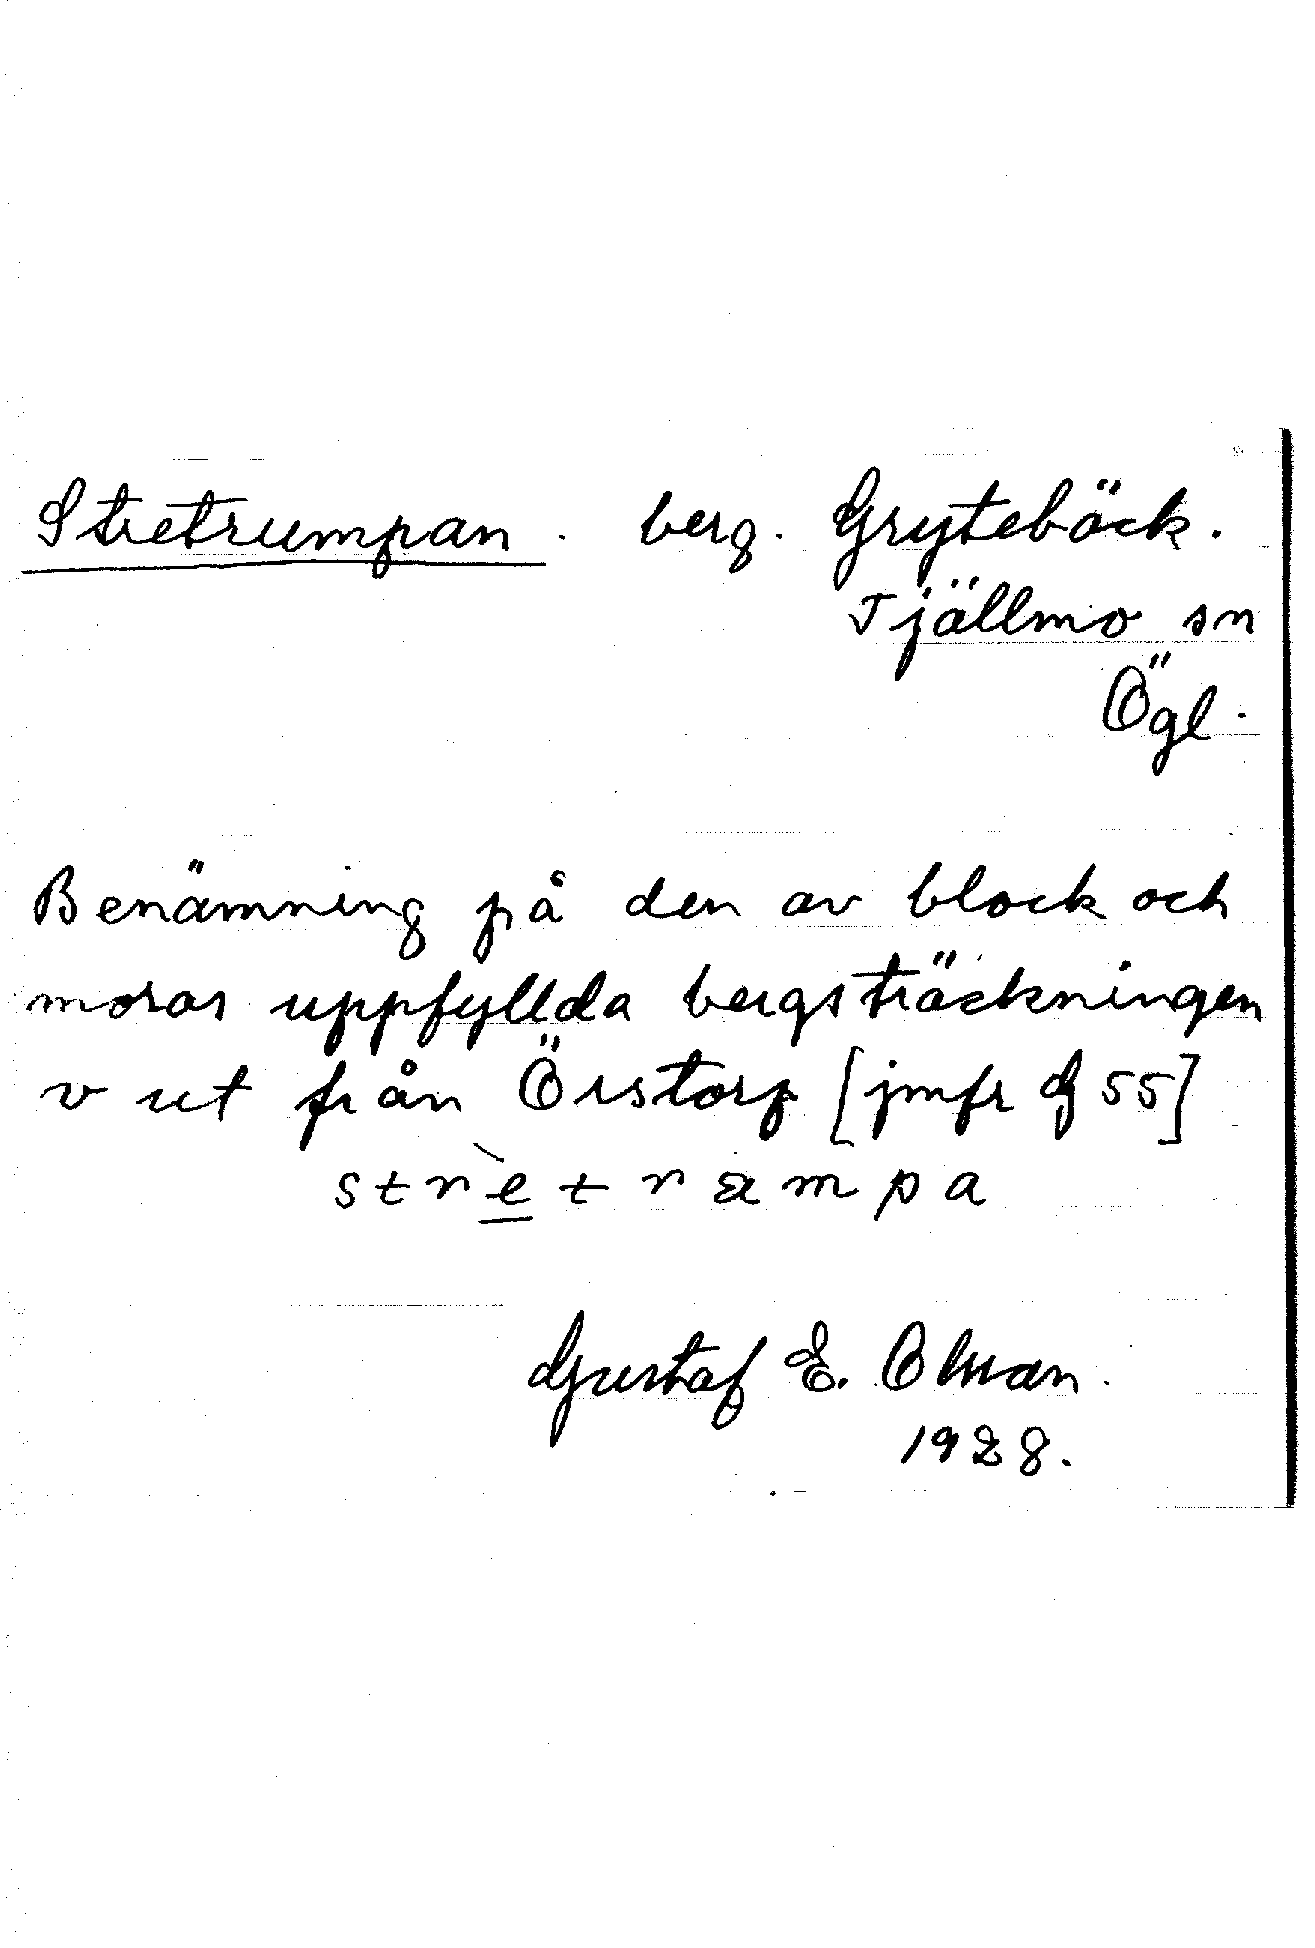 Stretrumpan. berg. Grytebäck.
Tjällmo sn
Ögl.
Benämning på den av block och
moras uppfyllda bergsträckningen
v ut från Örstorp [jmfr G 55]
strètrampa
Gustaf E. Olman.
1928.